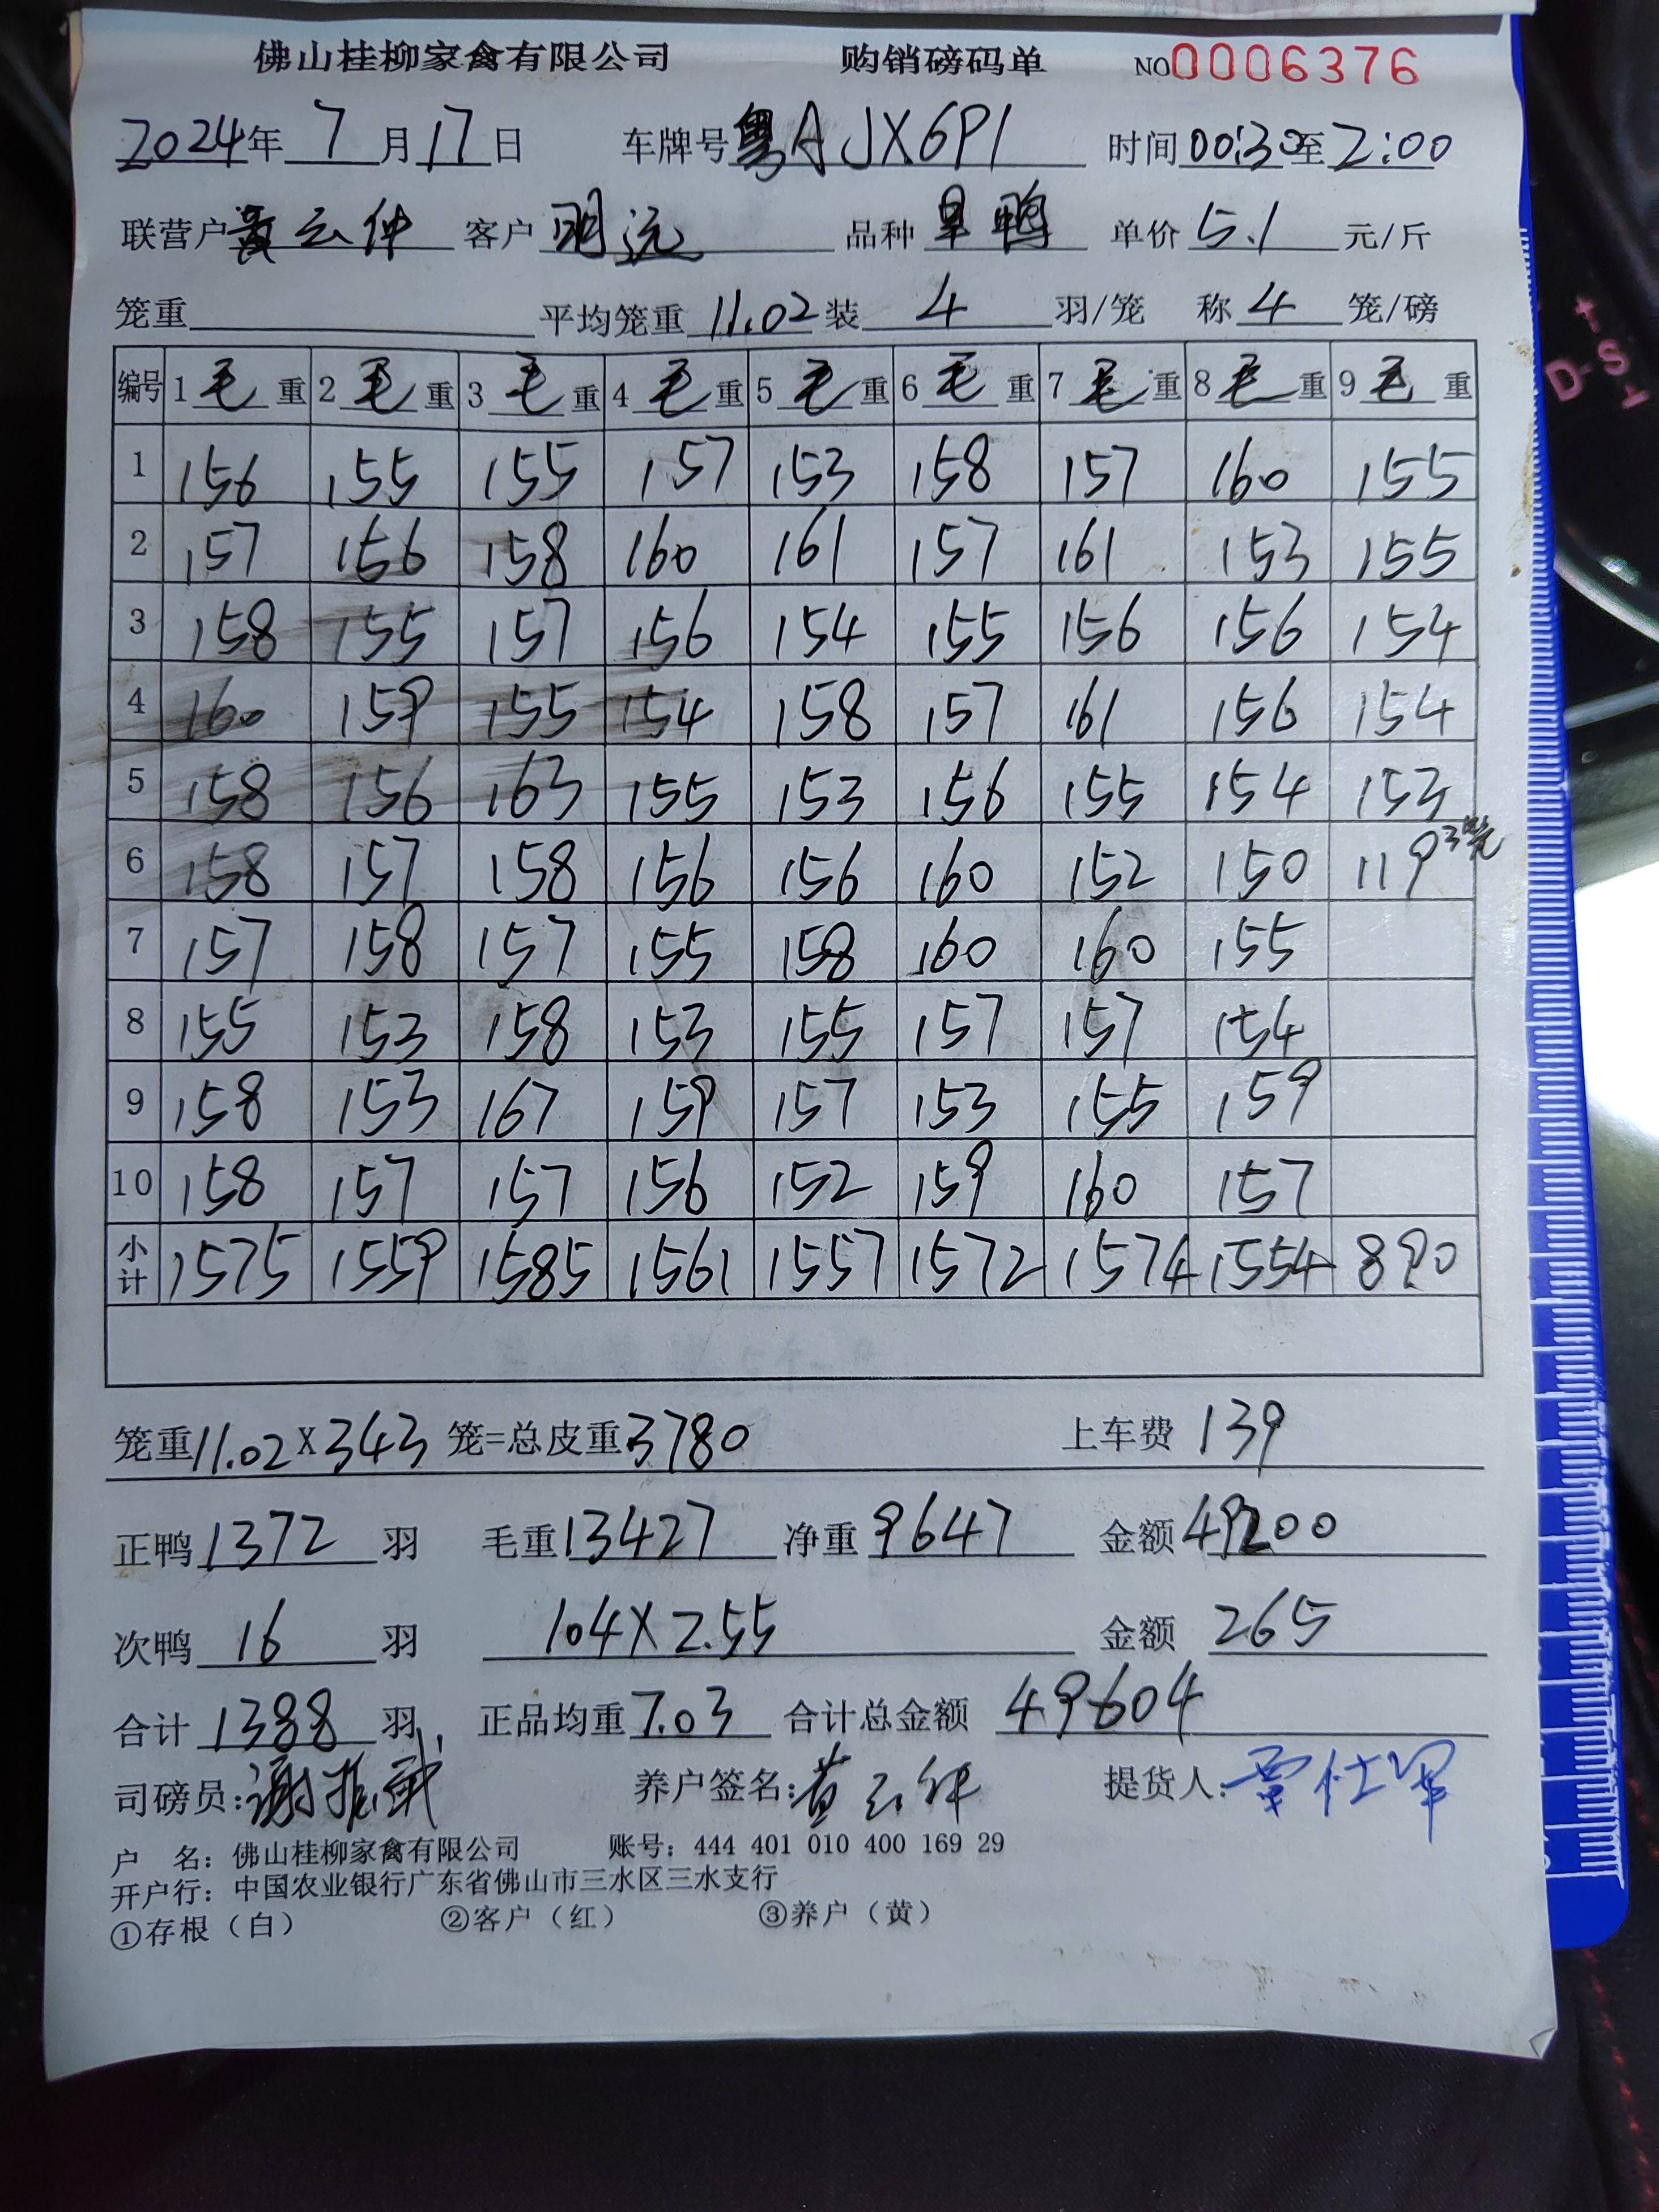 佛山桂柳家禽有限公司 购销磅码单 NO0006376
2024年7月17日 车牌号粤AJX6P1 时间00:30至2:00
联营户黄云仲 客户明远 品种旱鸭 单价5.1元/斤
笼重 平均笼重11.02装4羽/笼 称4笼/磅
编号 1毛重 2毛重 3毛重 4毛重 5毛重 6毛重 7毛重 8毛重 9毛重
1 156 155 155 157 153 158 157 160 155
2 157 156 158 160 161 157 161 153 155
3 158 155 157 156 154 155 156 156 154
4 160 159 155 154 158 157 161 156 154
5 158 156 163 155 153 156 155 154 153
6 158 157 158 156 156 160 152 150 119 3笼
7 157 158 157 155 158 160 160 155
8 155 153 158 153 155 157 157 154
9 158 153 167 159 157 153 155 159
10 158 157 157 156 152 159 160 157
小计 1575 1559 1585 1561 1557 1572 1574 1554 890
笼重11.02X343笼=总皮重3780 上车费139
正鸭1372羽 毛重13427 净重9647 金额49200
次鸭16羽 104X2.55 金额265
合计1388羽 正品均重7.03 合计总金额49604
司磅员:谢 养户签名:黄云仲 提货人:覃仕军
户 名：佛山桂柳家禽有限公司 账号：444 401 010 400 169 29
开户行：中国农业银行广东省佛山市三水区三水支行
①存根（白） ②客户（红） ③养户（黄）